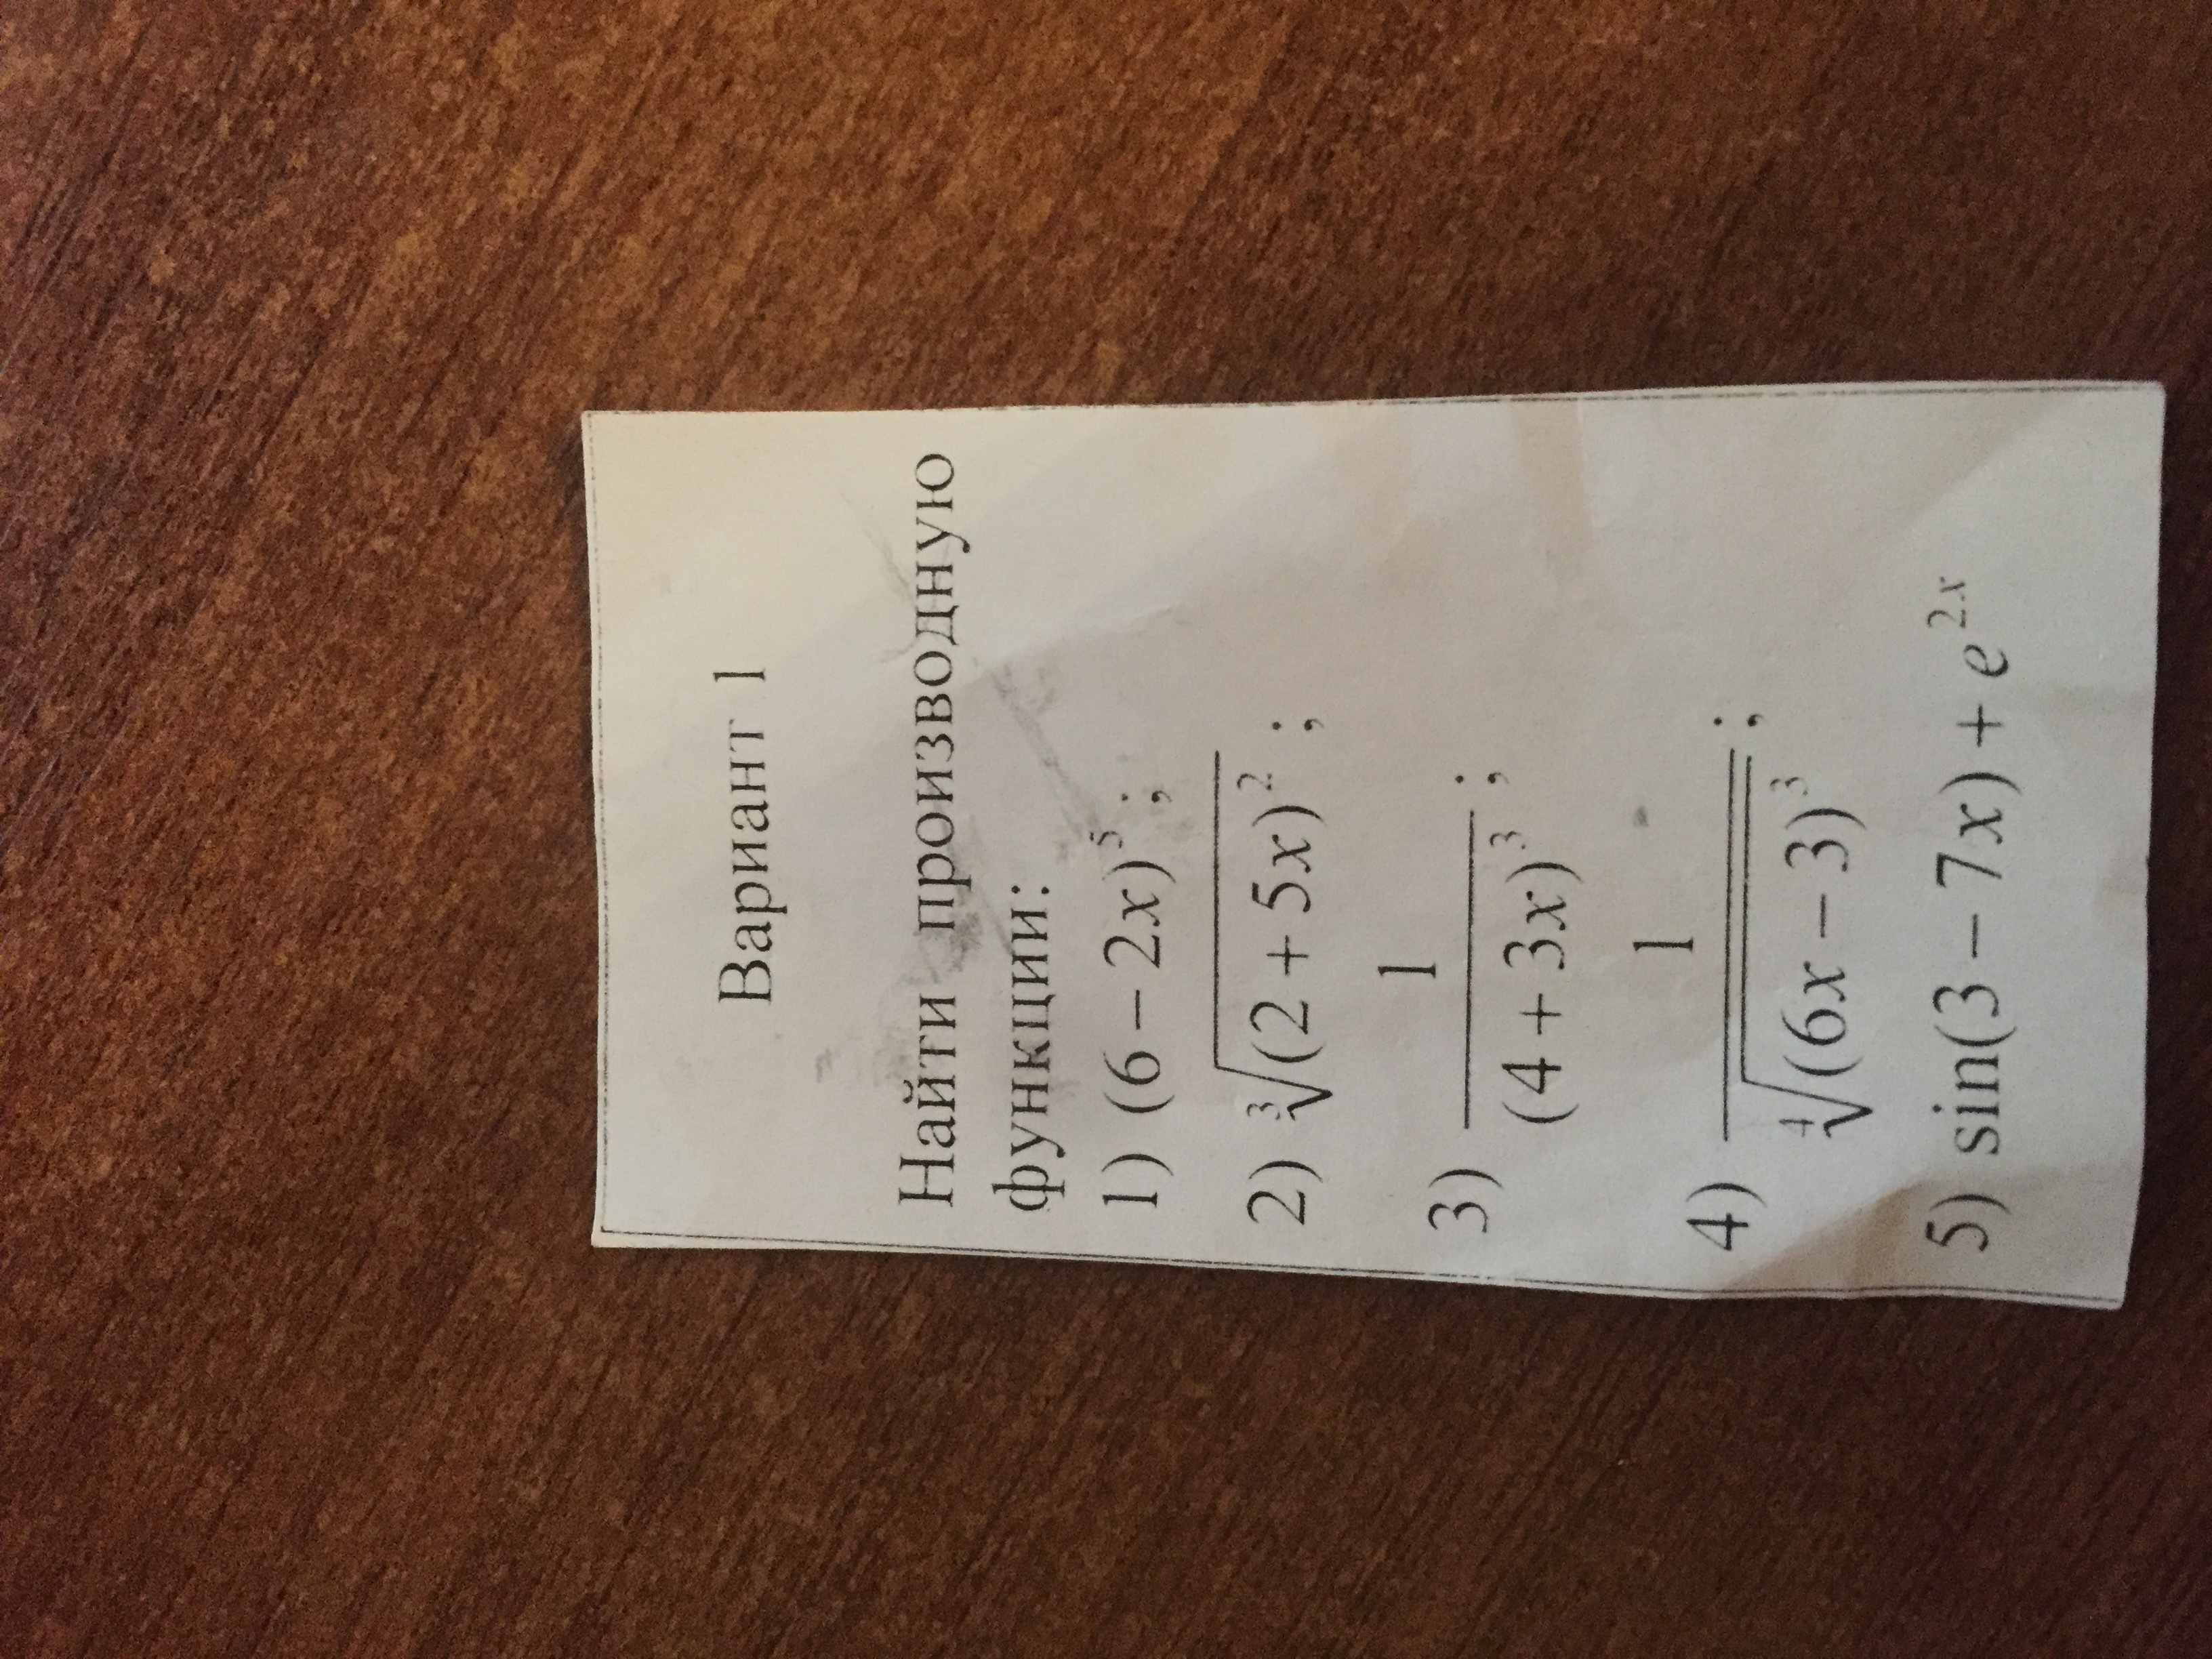 Вариант 1
Найти производную
функции:
1) (6 − 2x)⁵;
2) ∛(2 + 5x)²;
3) 1/(4 + 3x)³;
4) 1/∜(6x − 3)³;
5) sin(3 − 7x) + e²ˣ